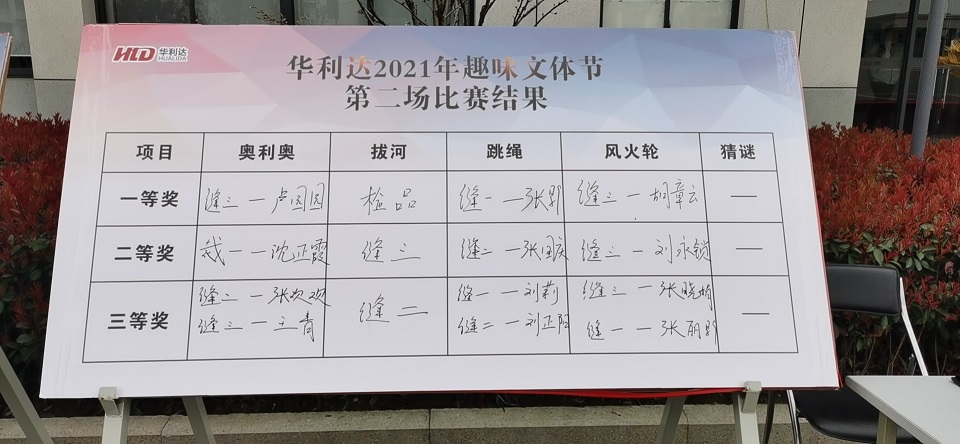 HLD 华利达
HUALIDA
华利达2021年趣味文体节
第二场比赛结果
项目 奥利奥 拔河 跳绳 风火轮 猜谜
一等奖 缝三一卢园园 检品 缝一一张 缝三一胡章云 —
二等奖 裁一一沈正霞 缝三 缝二一张国庆 缝三一刘永锁 —
三等奖 缝三一张欢欢 缝二 缝一一刘莉 缝三一张晓 —
缝三一王青 缝二一刘正 缝一一张丽